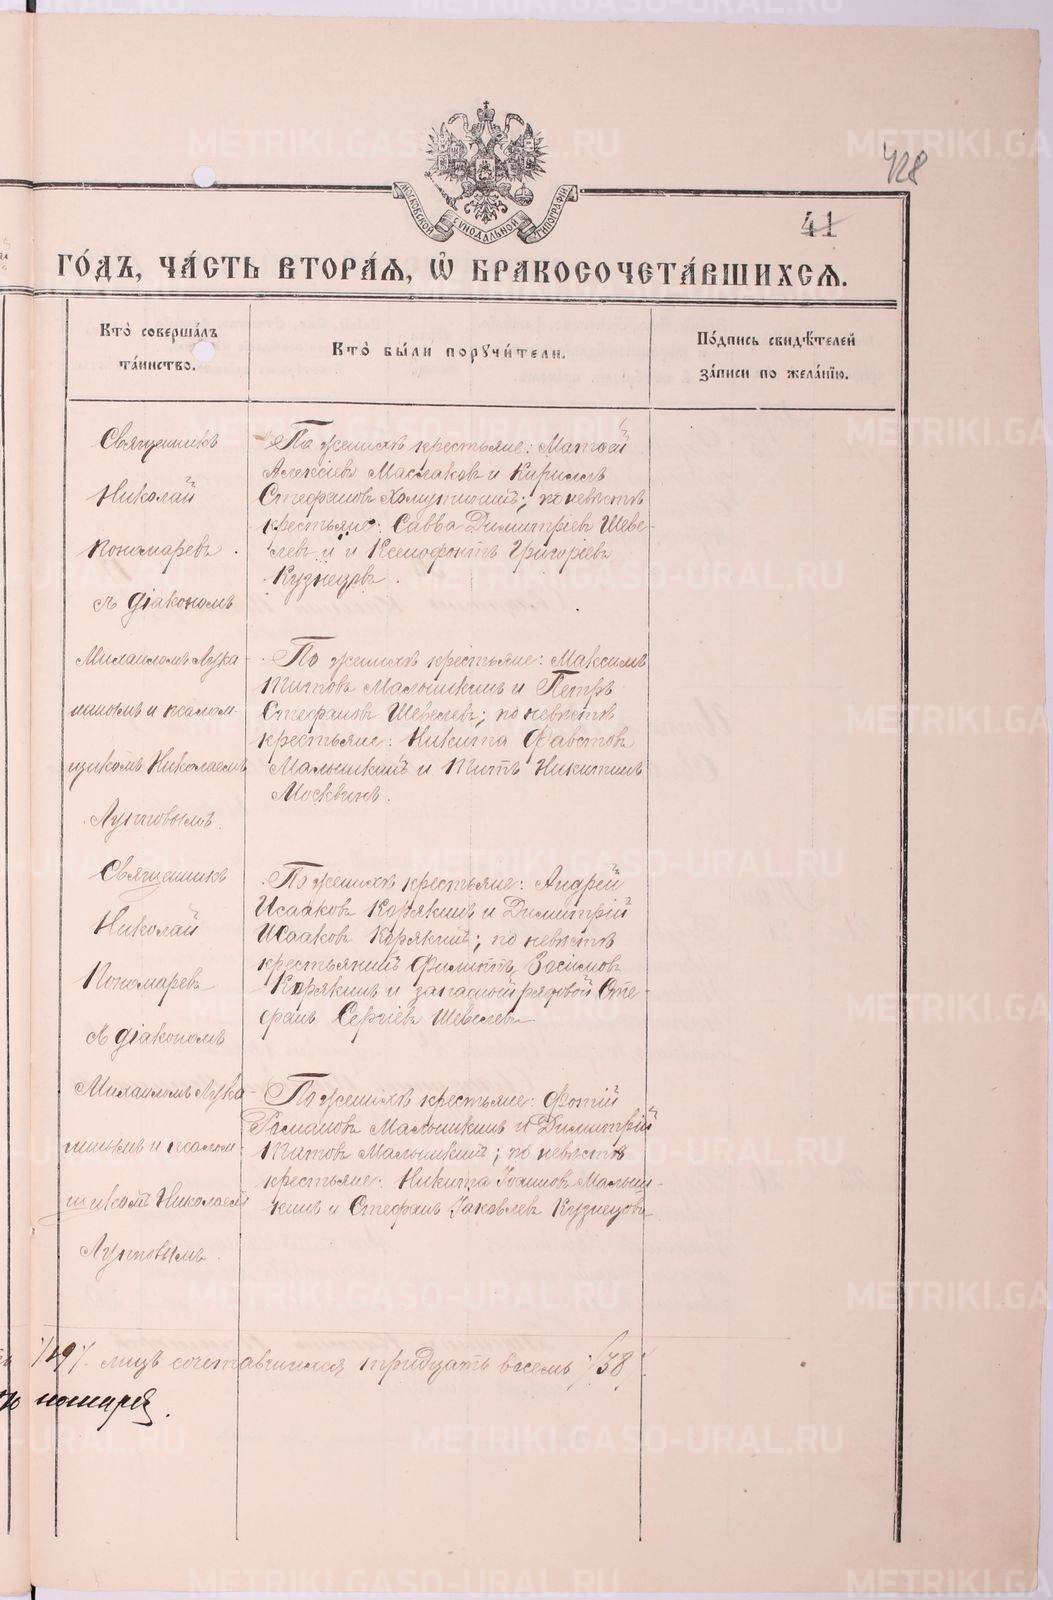 428
41
МОСКОВСКОЙ СѴНОДАЛЬНОЙ ТИПОГРАФІИ
ГО́ДЪ, ЧА́СТЬ ВТОРА́Я, Ѡ҆ БРАКОСОЧЕТА́ВШИХСЯ.
Кто̀ соверша́лъ
та́инство.
Кто̀ бы́ли порꙋчи́тели.
По́дпись свидѣ́телей
за́писи по жела́нїю.
Священникъ
Николай
Пономаревъ
съ діакономъ
Михаиломъ Лука-
шинымъ и псалом-
щикомъ Николаемъ
Луптовымъ.
По женихѣ крестьяне: Матѳей
Алексіевъ Маслаковъ и Кириллъ
Стефановъ Хомутинній; по невѣстѣ
крестьяне: Савва Димитріевъ Шеве-
левъ и и Ксенофонтъ Григоріевъ
Кузнецовъ.
По женихѣ крестьяне: Максимъ
Титовъ Малышкинъ и Петръ
Стефановъ Шевелевъ; по невѣстѣ
крестьяне: Никита Фавстовъ
Малышкинъ и Титъ Никитинъ
Москвинъ.
Священникъ
Николай
Пономаревъ
съ діакономъ
Михаиломъ Лука-
шинымъ и псалом-
щикомъ Николаемъ
Луптовымъ.
По женихѣ крестьяне: Андрей
Исааковъ Корякинъ и Димитрій
Исааковъ Корякинъ; по невѣстѣ
крестьянинъ Филиппъ Зосимовъ
Корякинъ и запасный рядовой Сте-
фанъ Сергіевъ Шевелевъ
По женихѣ крестьяне: Фотій
Романовъ Малышкинъ и Димитрій
Титовъ Малышкинъ; по невѣстѣ
крестьяне: Никита Іоанновъ Малыш-
кинъ и Стефанъ Іаковлевъ Кузнецовъ
/19/. лицъ сочетавшихся тридцать восемь /38/.